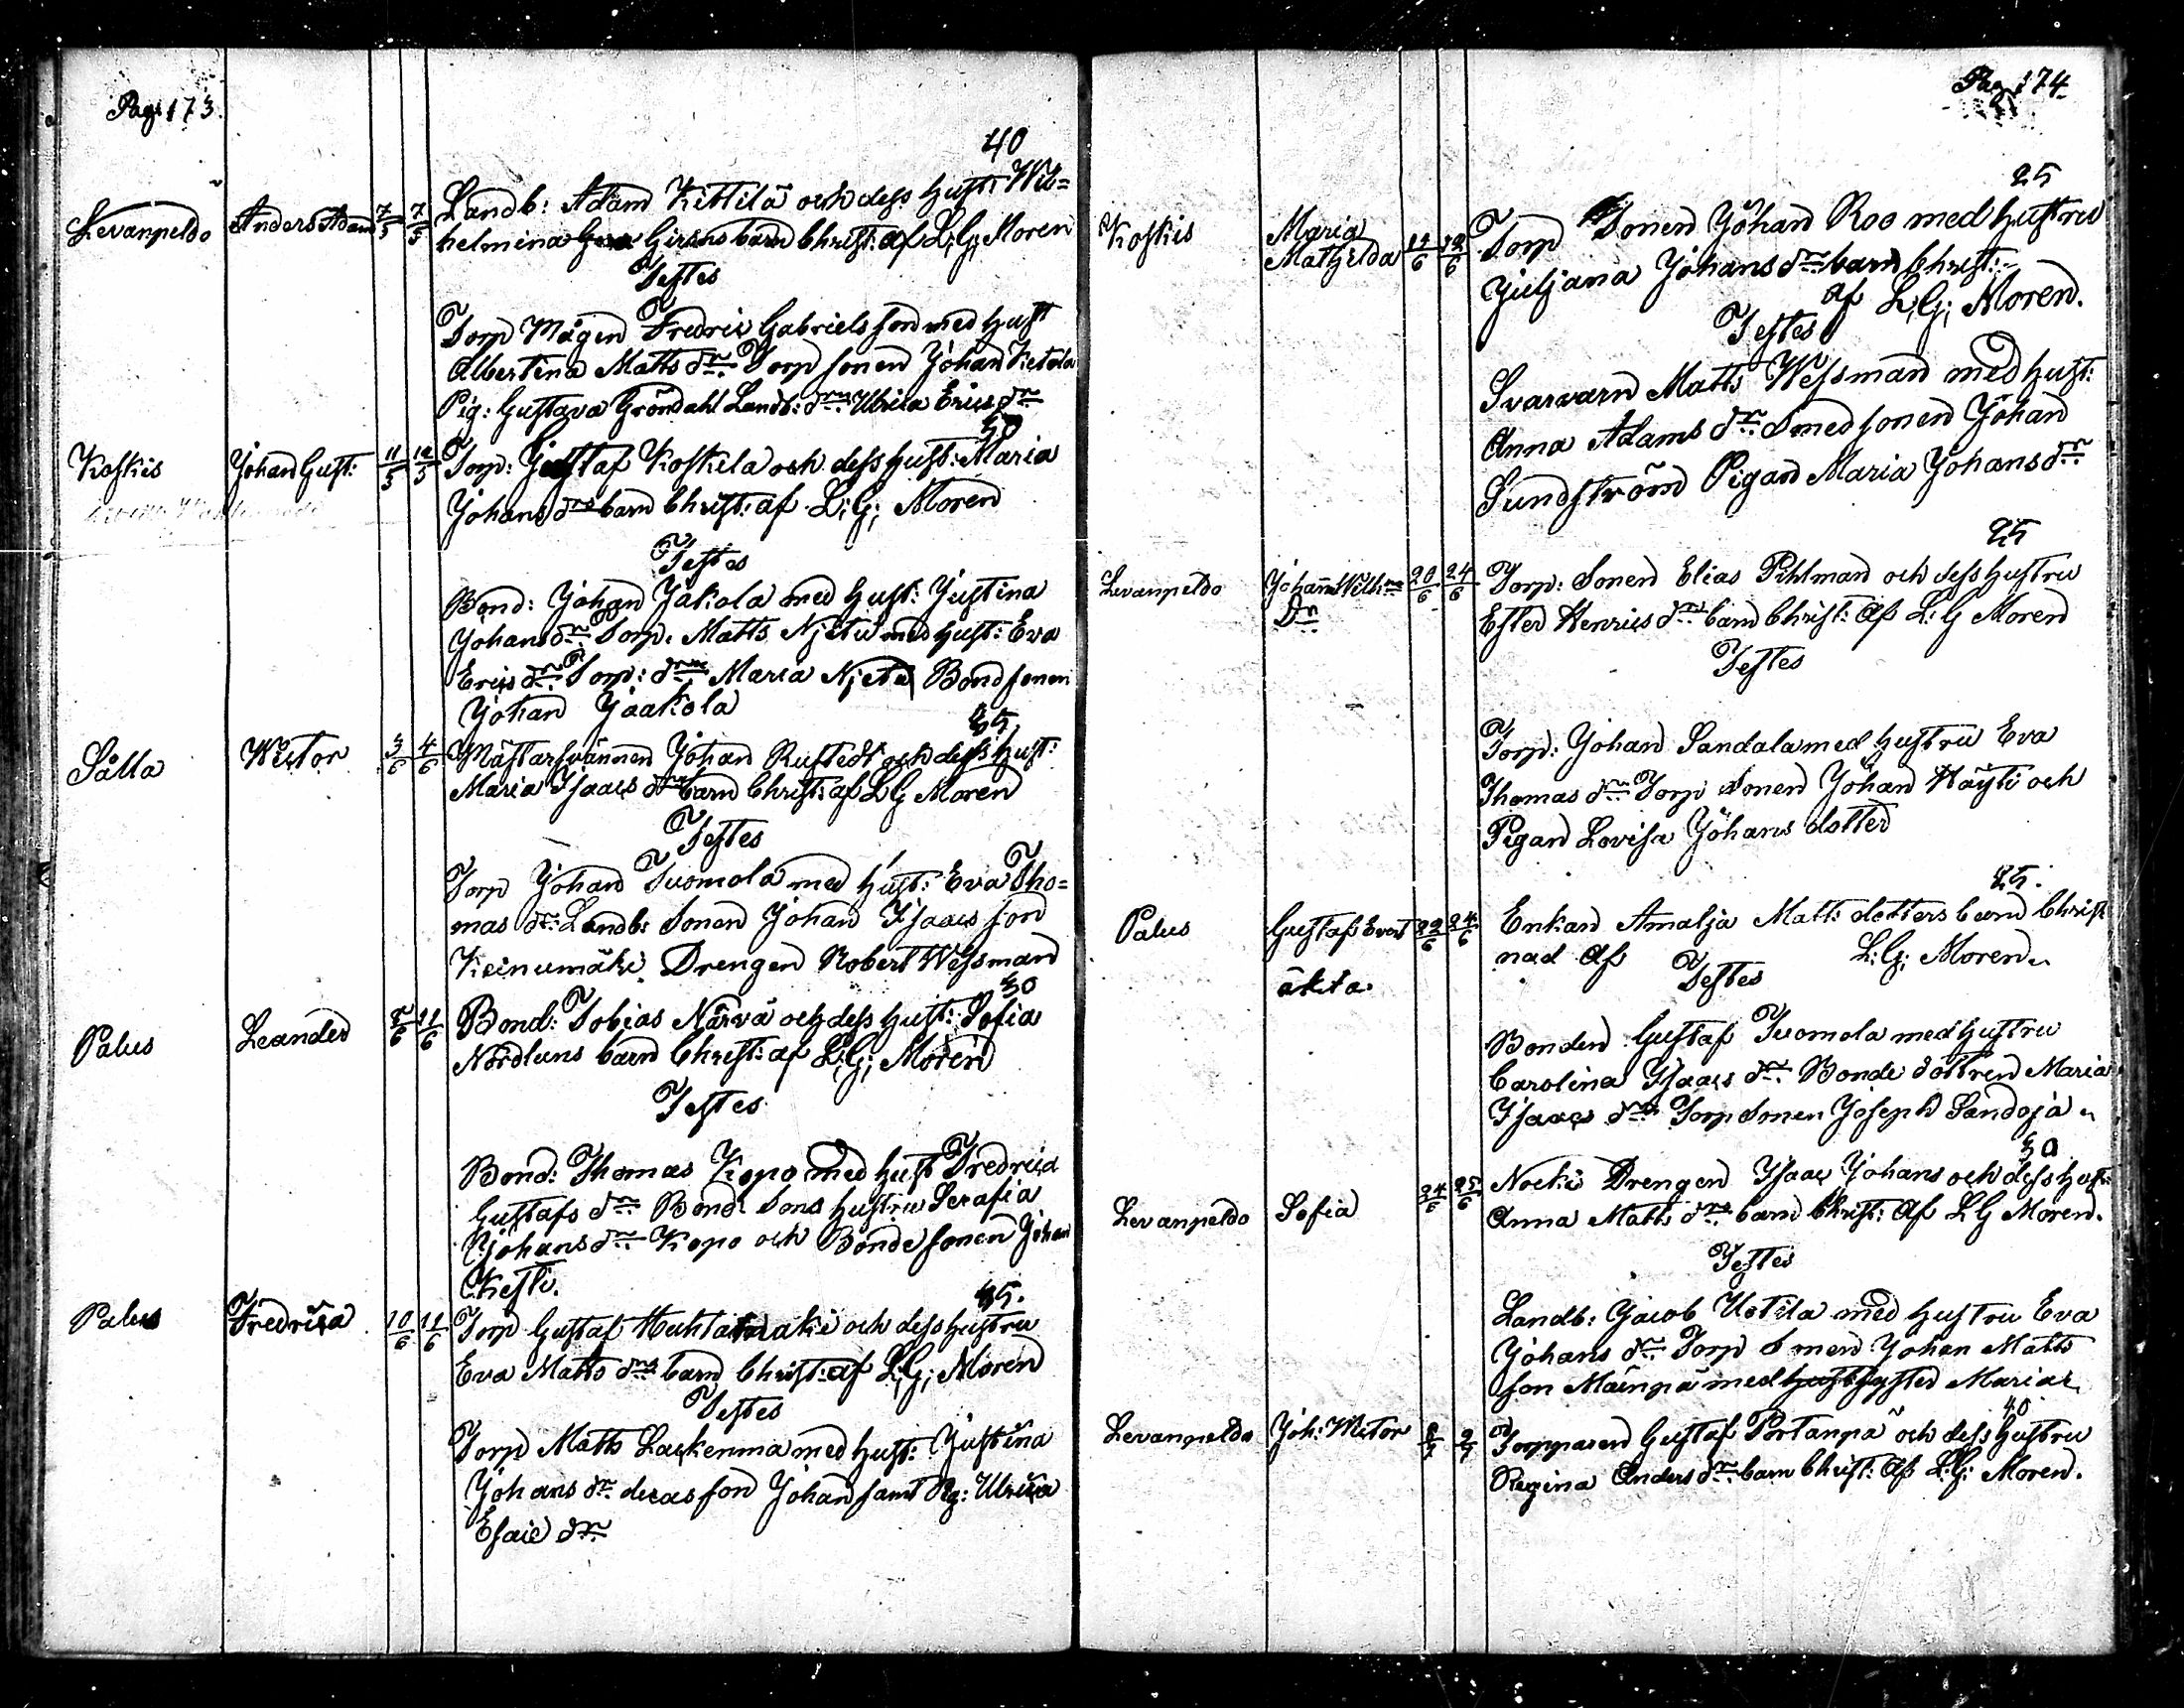 Pag: 173.
40
Levanpeldo Anders Adam 7/5 7/5 Landb: Adam Kittilä och dess Hust: Wil=
helmina Girsns barn Christ: af L;G; Moren
Testes
Torp Mågen Fredric Gabriels son med Hust
Albertina Matts dr Torp sonen Johan Ketola
Pig: Gustava Gröndahl Landb: drn Ulrica Erics dr
Koskis Johan Gust: 11/5 12/5 Torp: Gustaf Koskela och dess Hust: Maria
Johans drs barn Christ: af L;G; Moren
Testes
Bond: Johan Jakola med Hust: Justina
Johans dr Torp. Matts Njetu med Hust: Eva
Erics dr Torp: drn Maria Njeta Bondsonen
Johan Jaakola
Sålla Wictor 3/6 4/6 Mästarsvännen Johan Rustedt och dess Hust:
Maria Isaacs drs barn Christ: af LG Moren
Testes
Torp Johan Tuomola med Hust: Eva Tho=
mas dr Landb: Sonen Johan Isaacs son
Keinumäki Drengen Robert Wessman
30
Palus Leander 11/6 Bond: Tobias Närvä och dess Hust: Sofia
Nordluns barn Christ: af L;G; Moren
Testes
Bond: Thomas Kopo med Hust Fredrica
Gustafs dr Bond Sons Hustru Serafia
Johans dr Kopo och Bonde sonen Johan
Kesti.
Palus Fredrica 10/6 11/6 Torp Gustaf Huhtamaki och dess Hustru
Eva Matts drs barn Christ: af L;G; Moren
Testes
Torp Matts Laekenma med Hust: Justina
Johans dr deras son Johan samt Pig: Ulrica
Esaie dr
Pag 174
25
Koskis Maria 12/6 Torp Sonen Johan Roo med Hustru
Mathjelda
Juljana Johans dr barn Christ:
af L;G; Moren.
Testes
Svarvarn Matts Wessman med Hust:
Anna Adams dr Smedsonen Johan
Sundström Pigan Maria Johans dr
25
Levanpeldo Johanna Wilh:na 20/6 24/6 Torp: Sonen Elias Pihlman och dess Hustru
Dr Ester Henrics drs barn Christ: af L: G Moren
Testes
Torp: Johan Sandala med Hustru Eva
Thomas dr Torp Sonen Johan Häyti och
Pigan Lovisa Johans dotter
25.
Palus Gustaf Evert 22/6 24/6 Enkan Amalja Matts dotters barn Christ
nad af L;G; Moren
äkta. Testes
Bonden Gustaf Tuomola med Hustru
Carolina Isaacs dr Bonde dottren Maria
Isaacs dr Torp Sonen Joseph Sandoja
30
Levanpeldo Sofia 24/6 25/6 Nocki Drengen Isaac Johans och dess Hust:
Anna Matts drs barn Christ: af LG Moren.
Testes
Landb: Jacob Uotila med Hustru Eva
Johans dr Torp Smen Johan Matts
son Mäenpä med syster Maria
40
Levanpeldo Joh: Victor Torpparen Gustaf Portanpä och dess Hustru
Regina Anders dr barn Christ: af L:G: Moren.